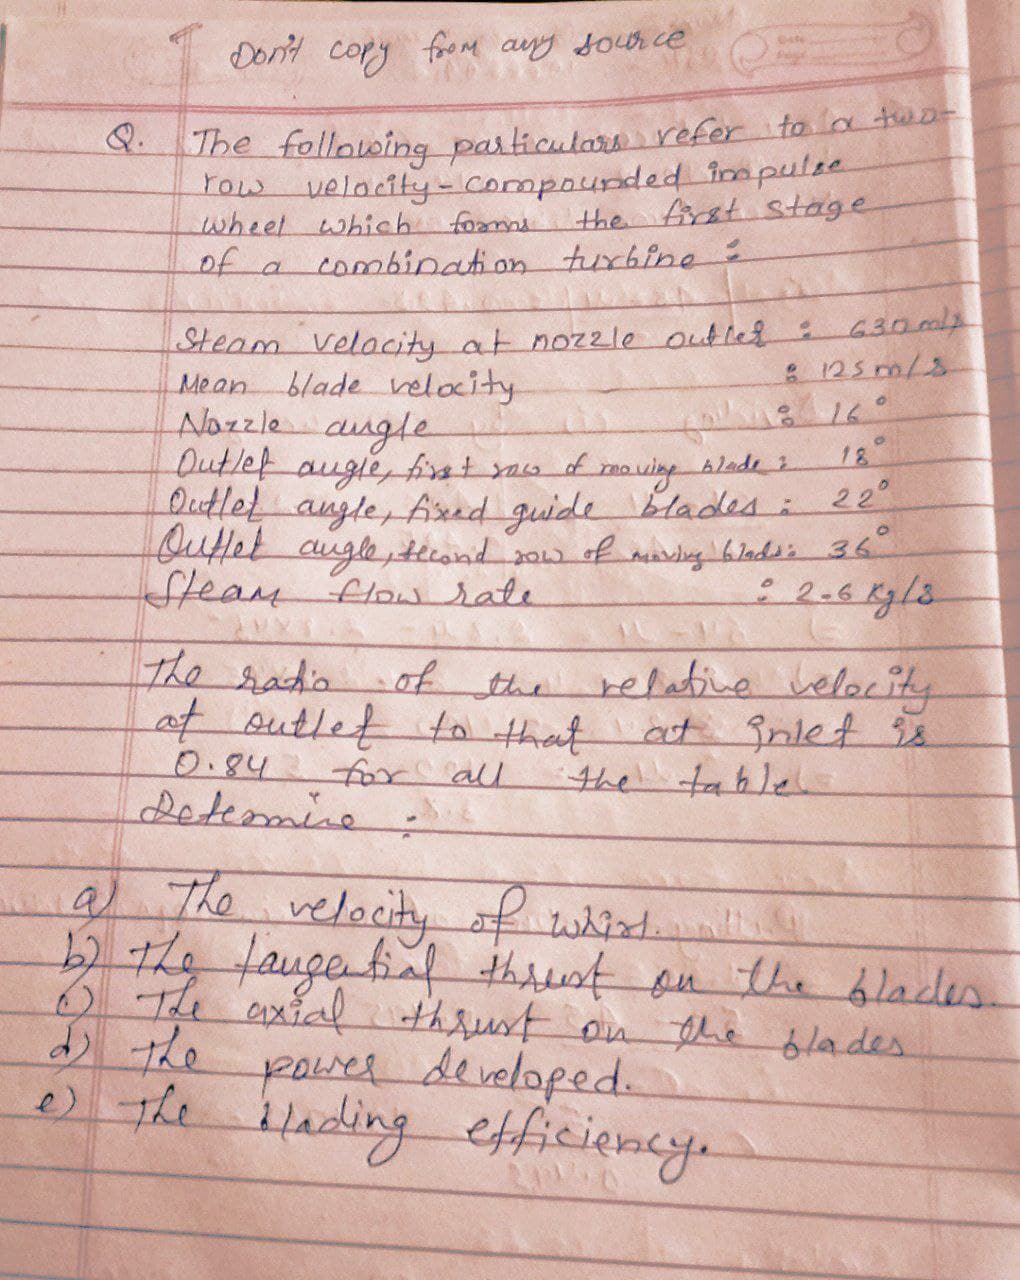 Don't copy from any source
Q. The following particulars refer to a two-
row velocity-compounded impulse
wheel which forms the first stage
of a combination turbine :
Steam velocity at nozzle outlet : 630 m/s
Mean blade velocity : 125 m/s
Nozzle angle : 16°
Outlet angle, first row of moving blade : 18°
Outlet angle, fixed guide blades : 22°
Outlet angle, second row of moving blads: 36°
Steam flow rate : 2.6 kg/s
The ratio of the relative velocity
at outlet to that at inlet is
0.84 for all the table
Determine :
a) The velocity of whirl.
b) The tangential thrust on the blades.
c) The axial thrust on the blades
d) The power developed.
e) The blading efficiency.